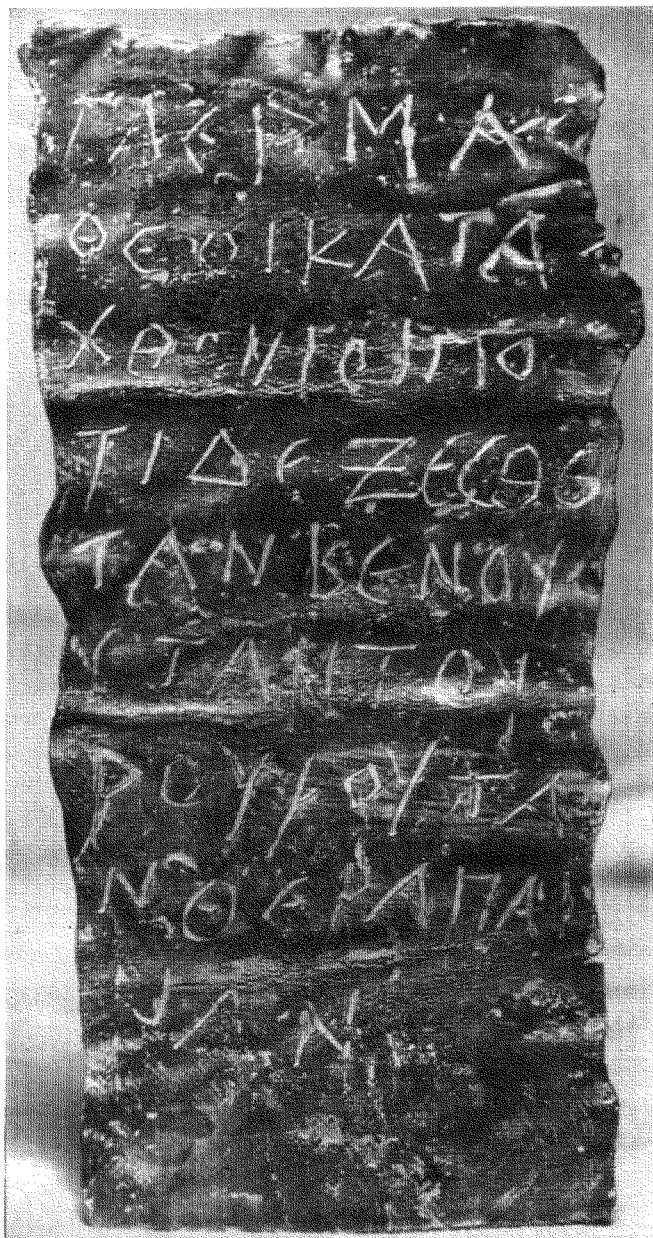 ΓΑΕΡΜΑΣ
ΘΕΟΙΚΑΤΑ
ΧΘΟΝΙΟΙΠΟ
ΤΙΔΕΞΕΣΘΕ
ΤΑΝΒΕΝΟΥΣ
ΣΤΑΝΤΟΥ
ΡΟΥΦΟΥΤΑ
ΝΘΕΡΑΠΑΙ
ΝΑΝ